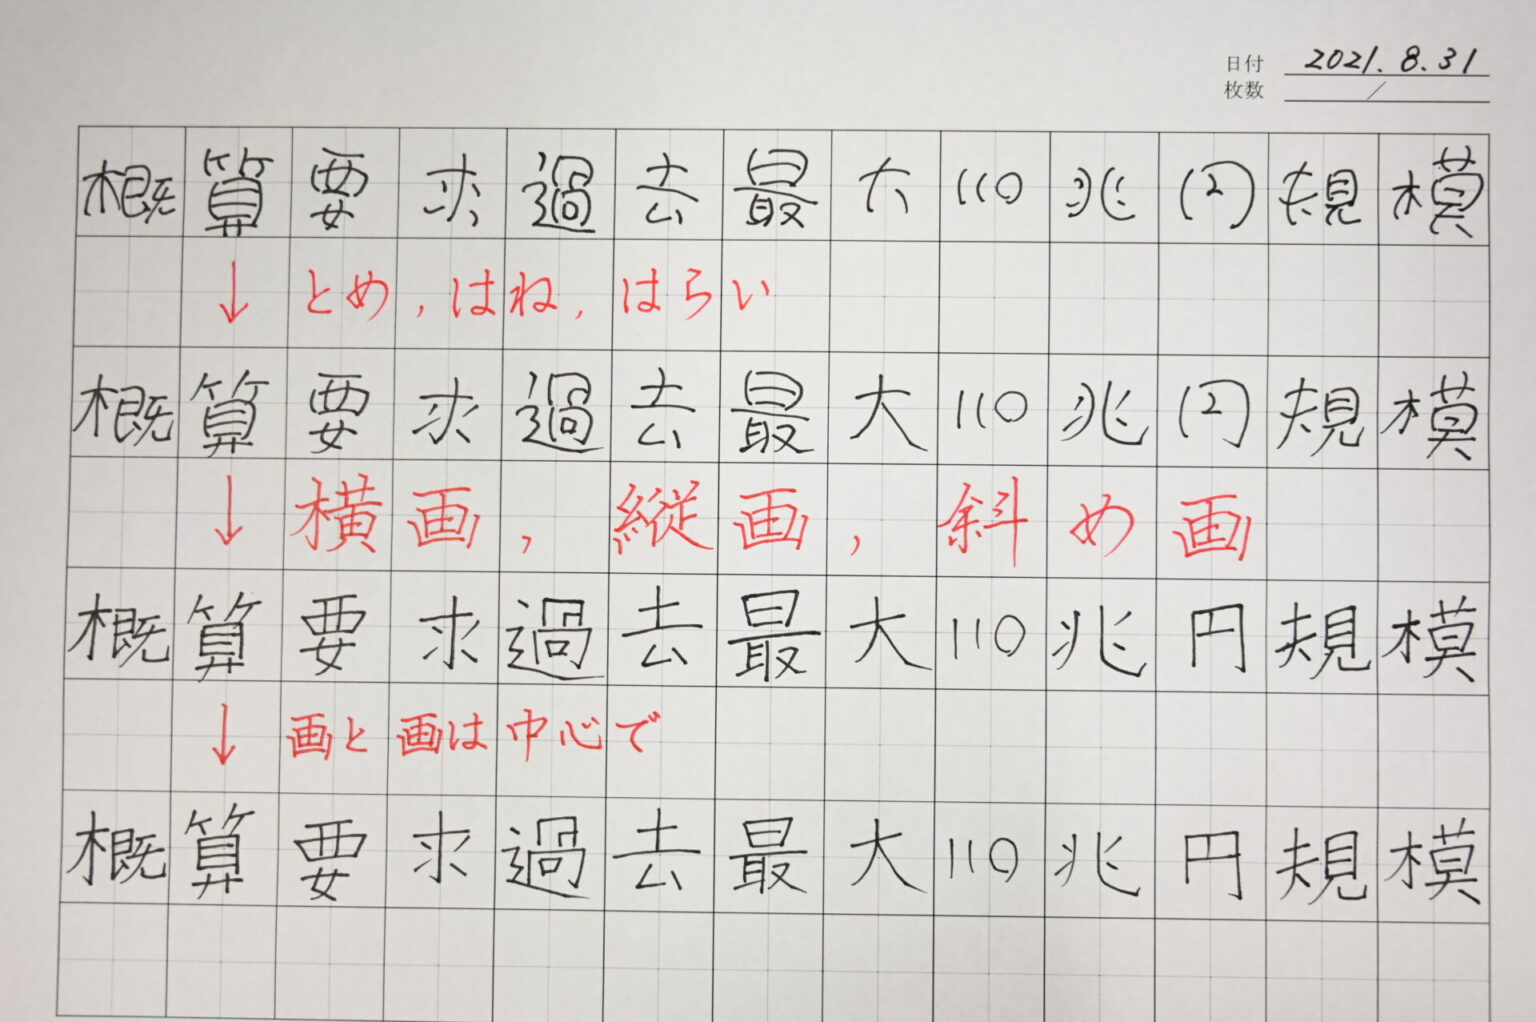 日付 2021.8.31
枚数 /
概算要求過去最大110兆円規模
↓ とめ，はね，はらい
概算要求過去最大110兆円規模
↓ 横画，縦画，斜め画
概算要求過去最大110兆円規模
↓ 画と画は中心で
概算要求過去最大110兆円規模